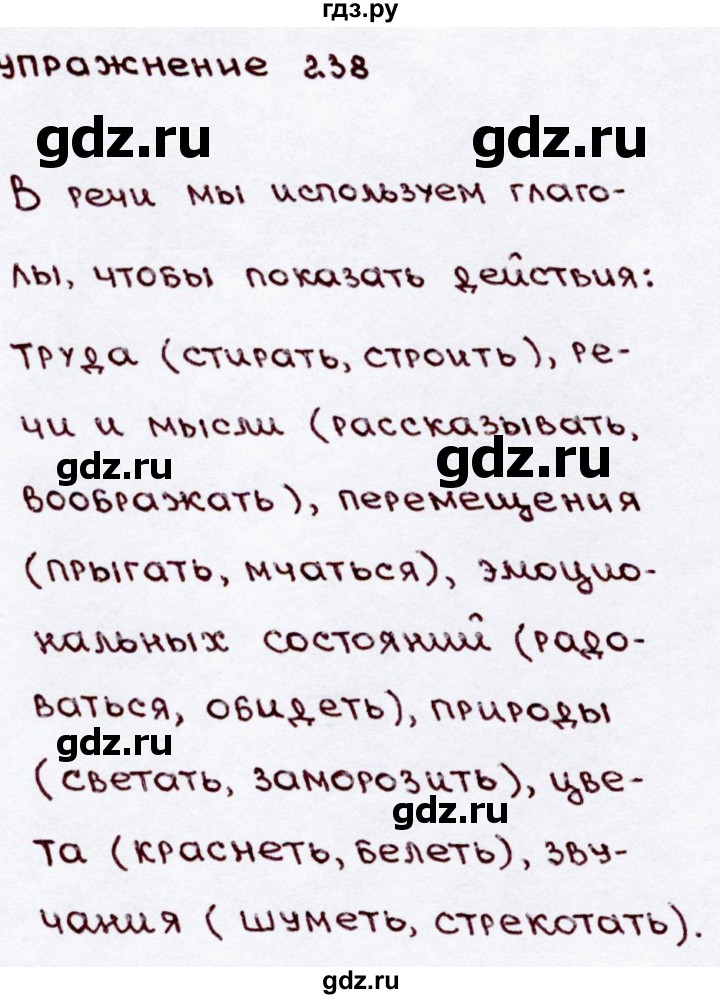 гдз.ру
упражнение 238
gdz.ru gdz.ru
В речи мы используем глаго-
лы, чтобы показать действия:
труда (стирать, строить), ре-
чи и мысли (рассказывать,
gdz.ru gdz.ru
воображать), перемещения
(прыгать, мчаться), эмоцио-
нальных состояний (радо-
ваться, обидеть), природы
gdz.ru
(светать, заморозить), цве-
gdz.ru
та (краснеть, белеть), зву-
чания (шуметь, стрекотать).
gdz.ru